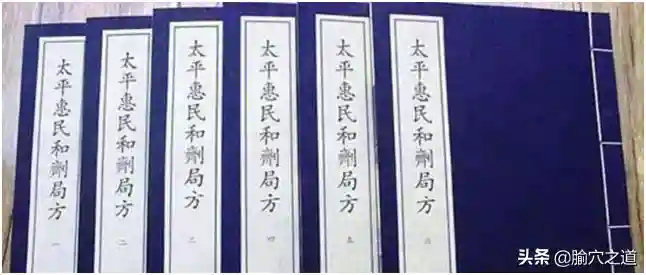 太平惠民和劑局方 一
太平惠民和劑局方 二
太平惠民和劑局方 三
太平惠民和劑局方 四
太平惠民和劑局方 五
太平惠民和劑局方 六
头条 @腧穴之道